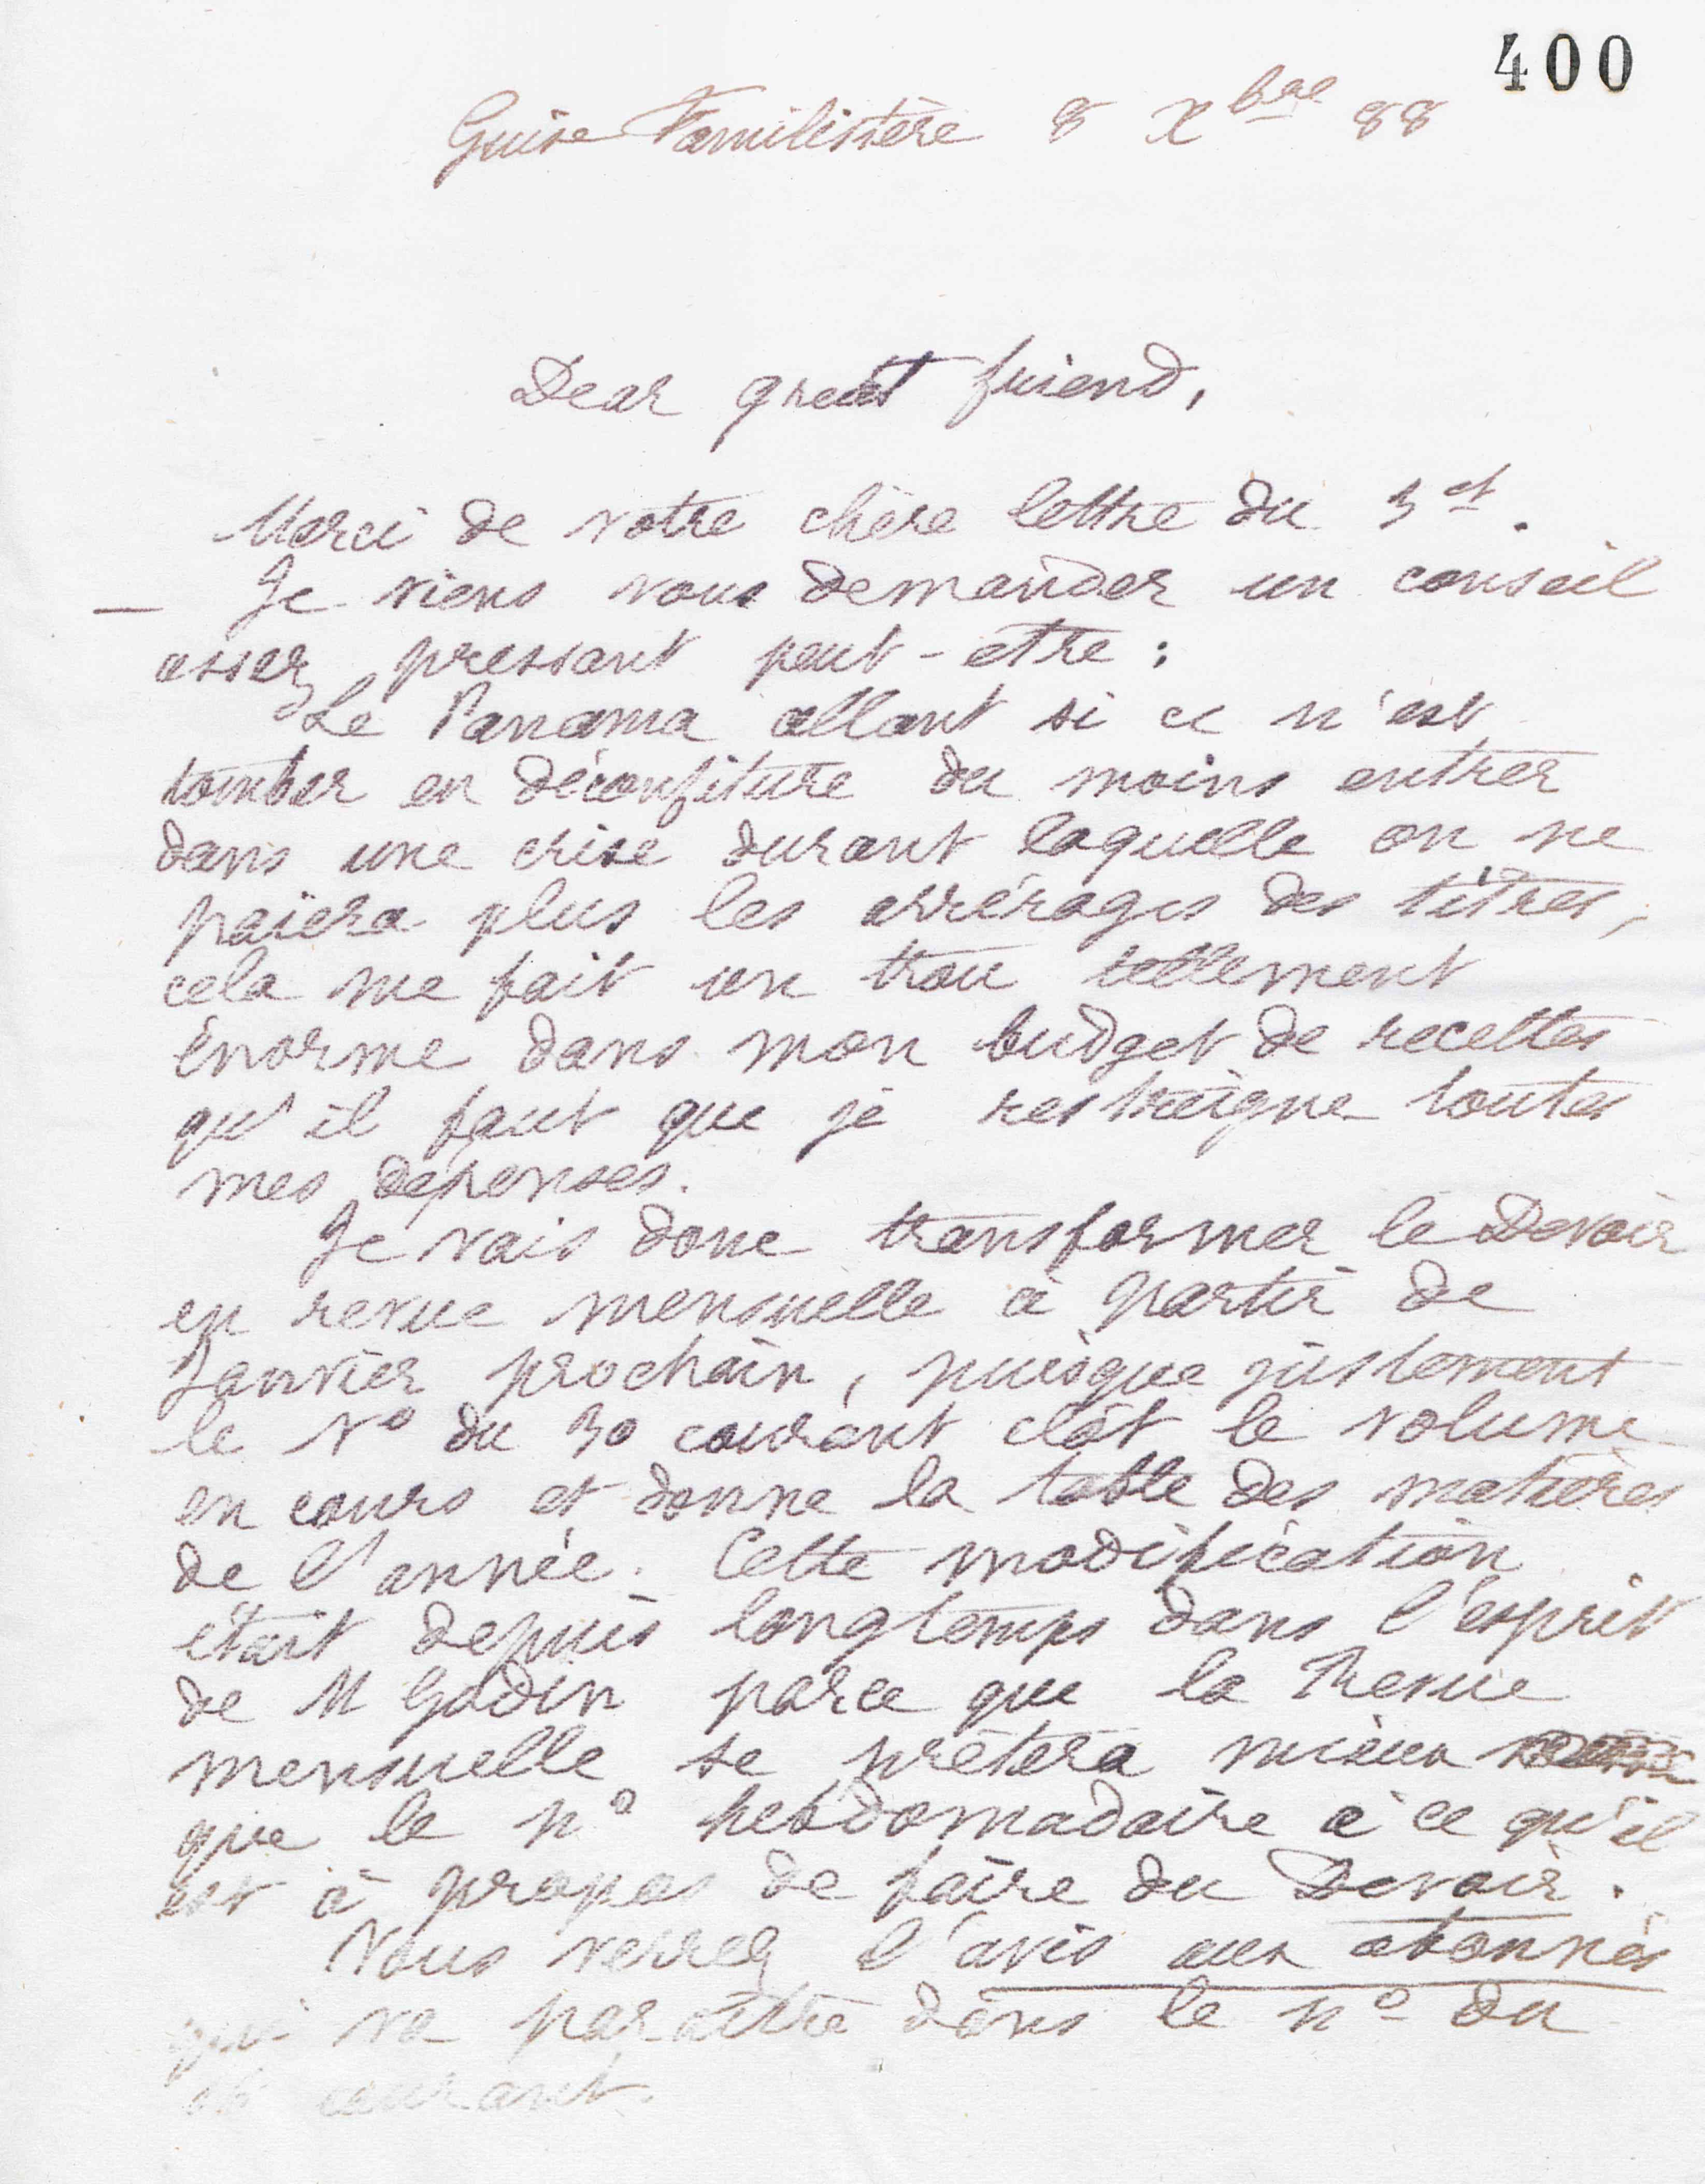 400
Guise Familistère 8 Xbre 88
Dear great friend,
Merci de votre chère lettre du 3 ct.
— Je viens vous demander un conseil
assez pressant peut-etre :
Le Panama allant si ce n'est
tomber en déconfiture du moins entrer
dans une crise durant laquelle on ne
paiera plus les arrérages des titres,
cela me fait un trou tellement
énorme dans mon budget de recettes
qu'il faut que je restreigne toutes
mes dépenses.
Je vais donc transformer le Devoir
en revue mensuelle à partir de
Janvier prochain, puisque justement
le No du 30 courant clôt le volume
en cours et donne la table des matières
de l'année. Cette modification
était depuis longtemps dans l'esprit
de M Godin parce que la Revue
mensuelle se prêtera mieux
que le no hebdomadaire à ce qu'il
est à propos de faire du Devoir.
Vous verrez l'avis aux abonnés
qui va paraître dans le no du
16 courant.